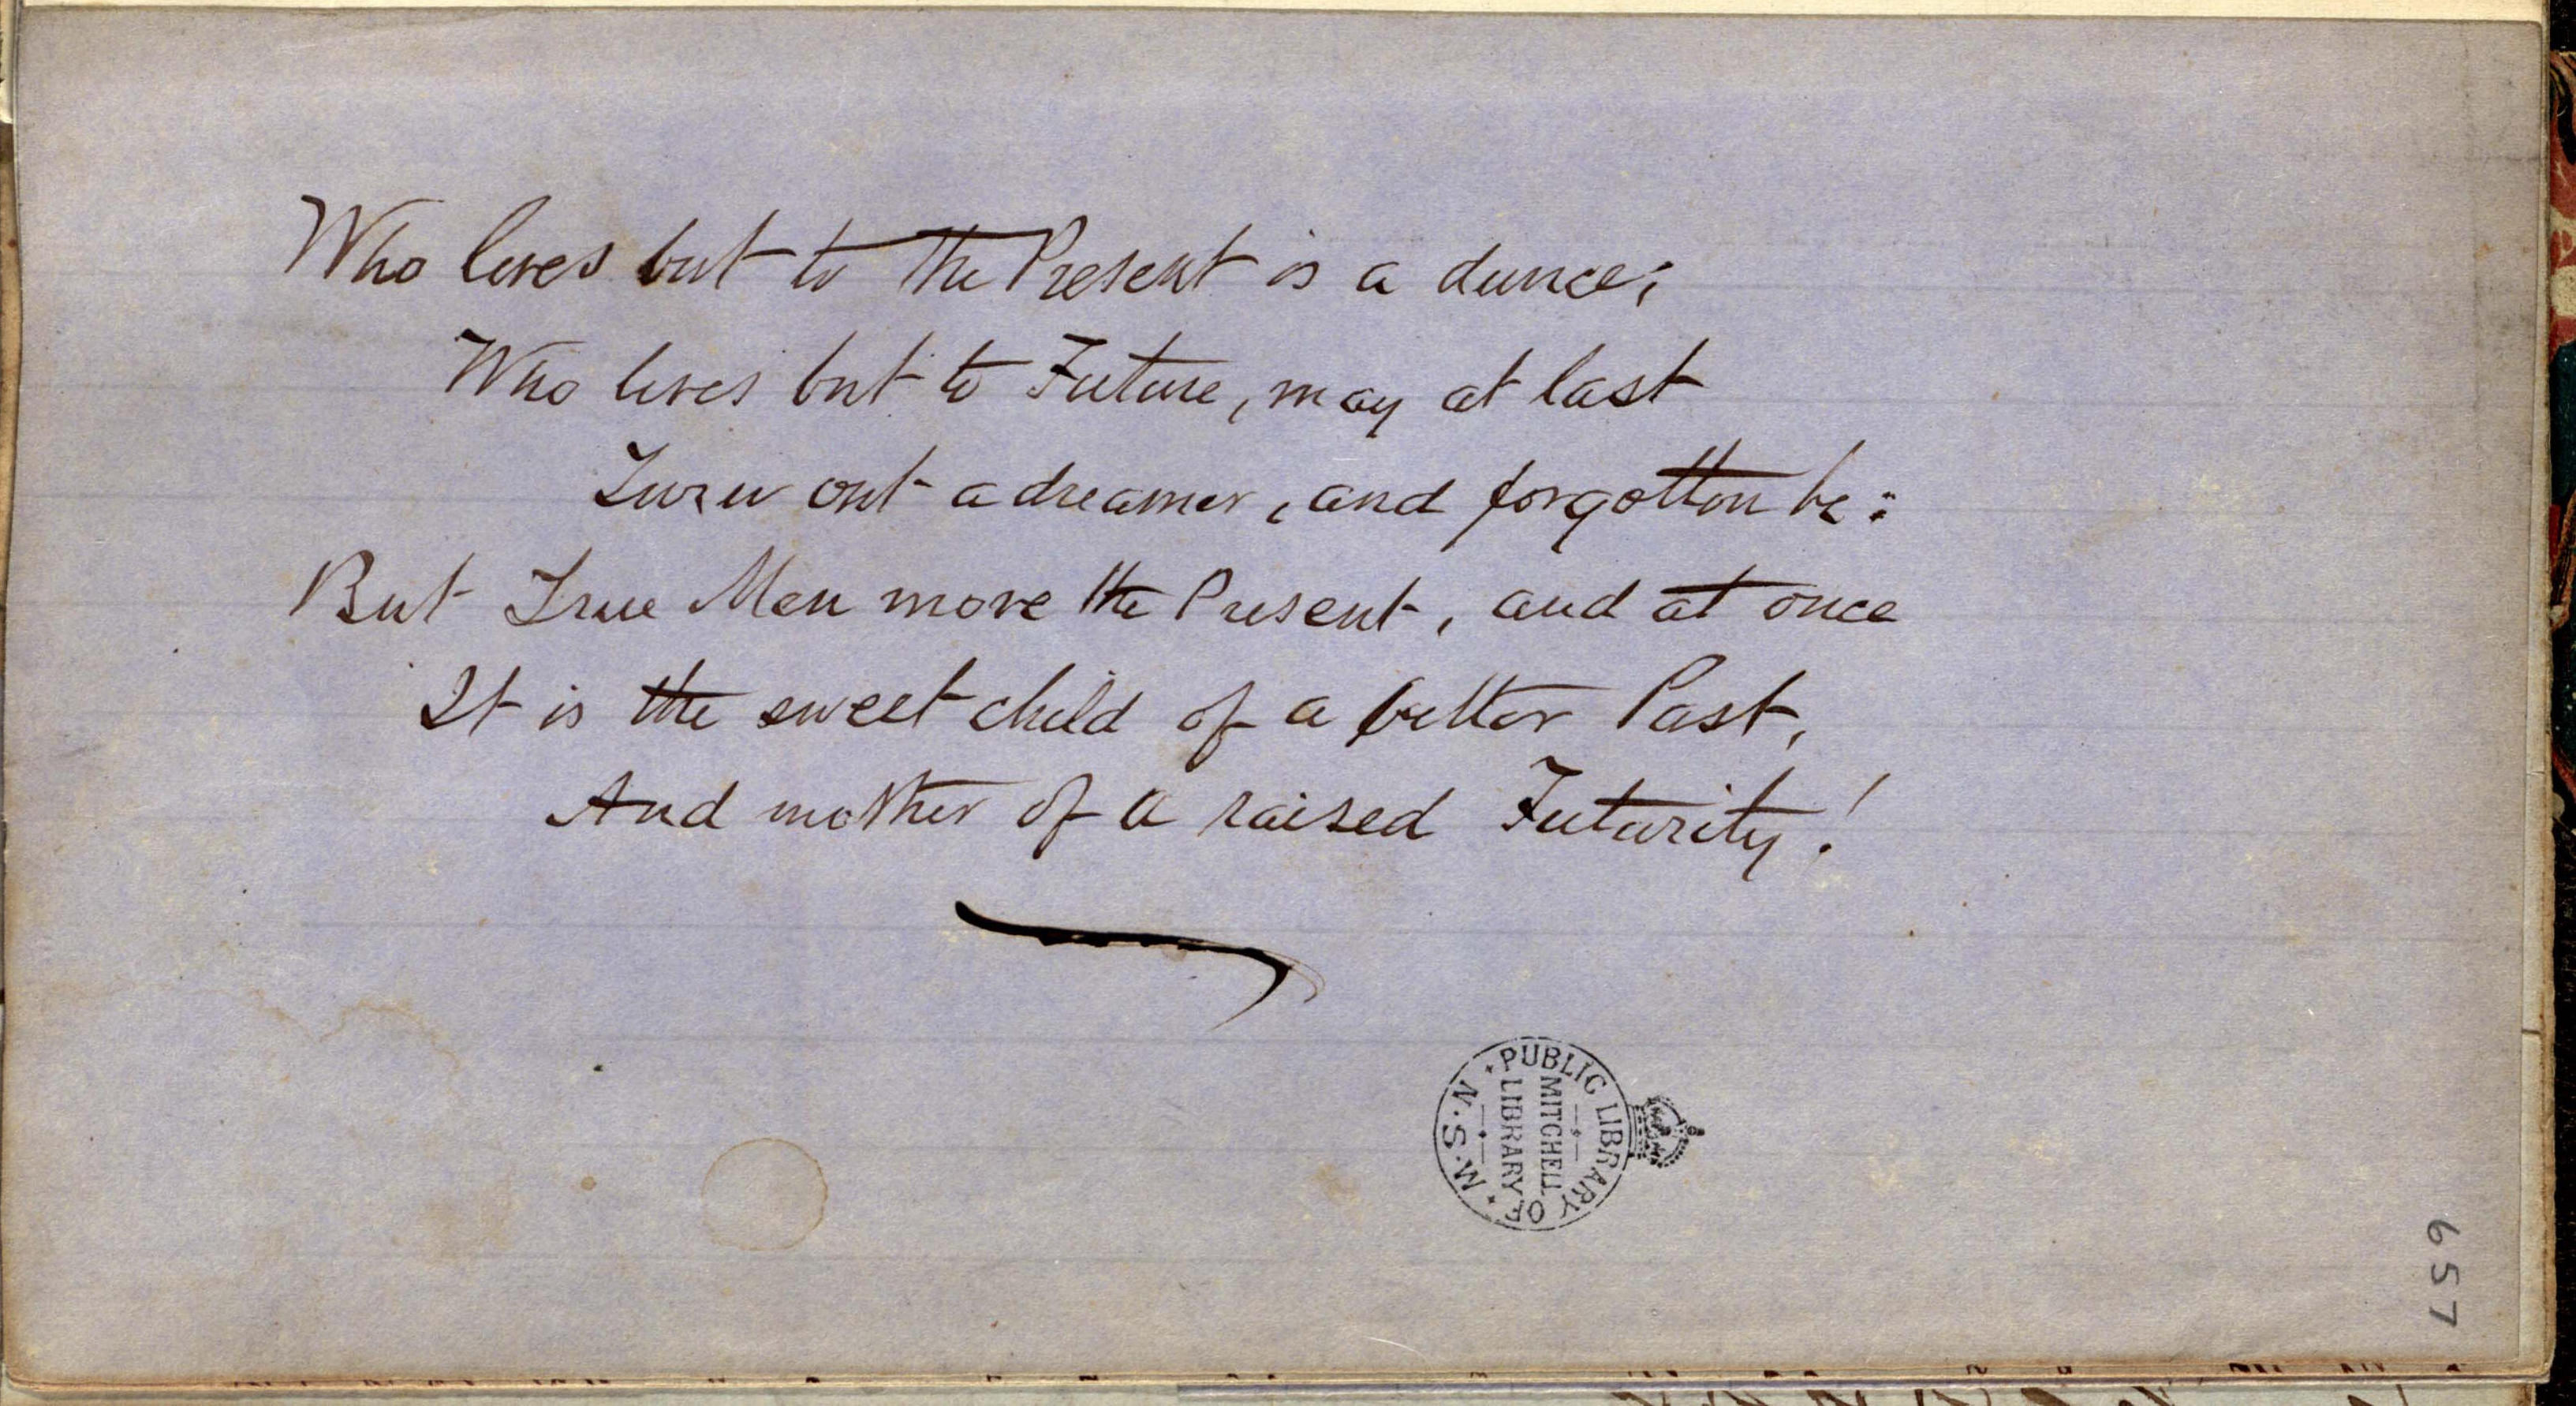 Who lives but to the Present is a dunce;
Who lives but to Future, may at last
Turn out a dreamer, and forgotton be:
But True Men move the Present, and at once
It is the sweet child of a better Past,
And mother of a raised Futurity!
PUBLIC LIBRARY OF N.S.W.
MITCHELL
LIBRARY
657